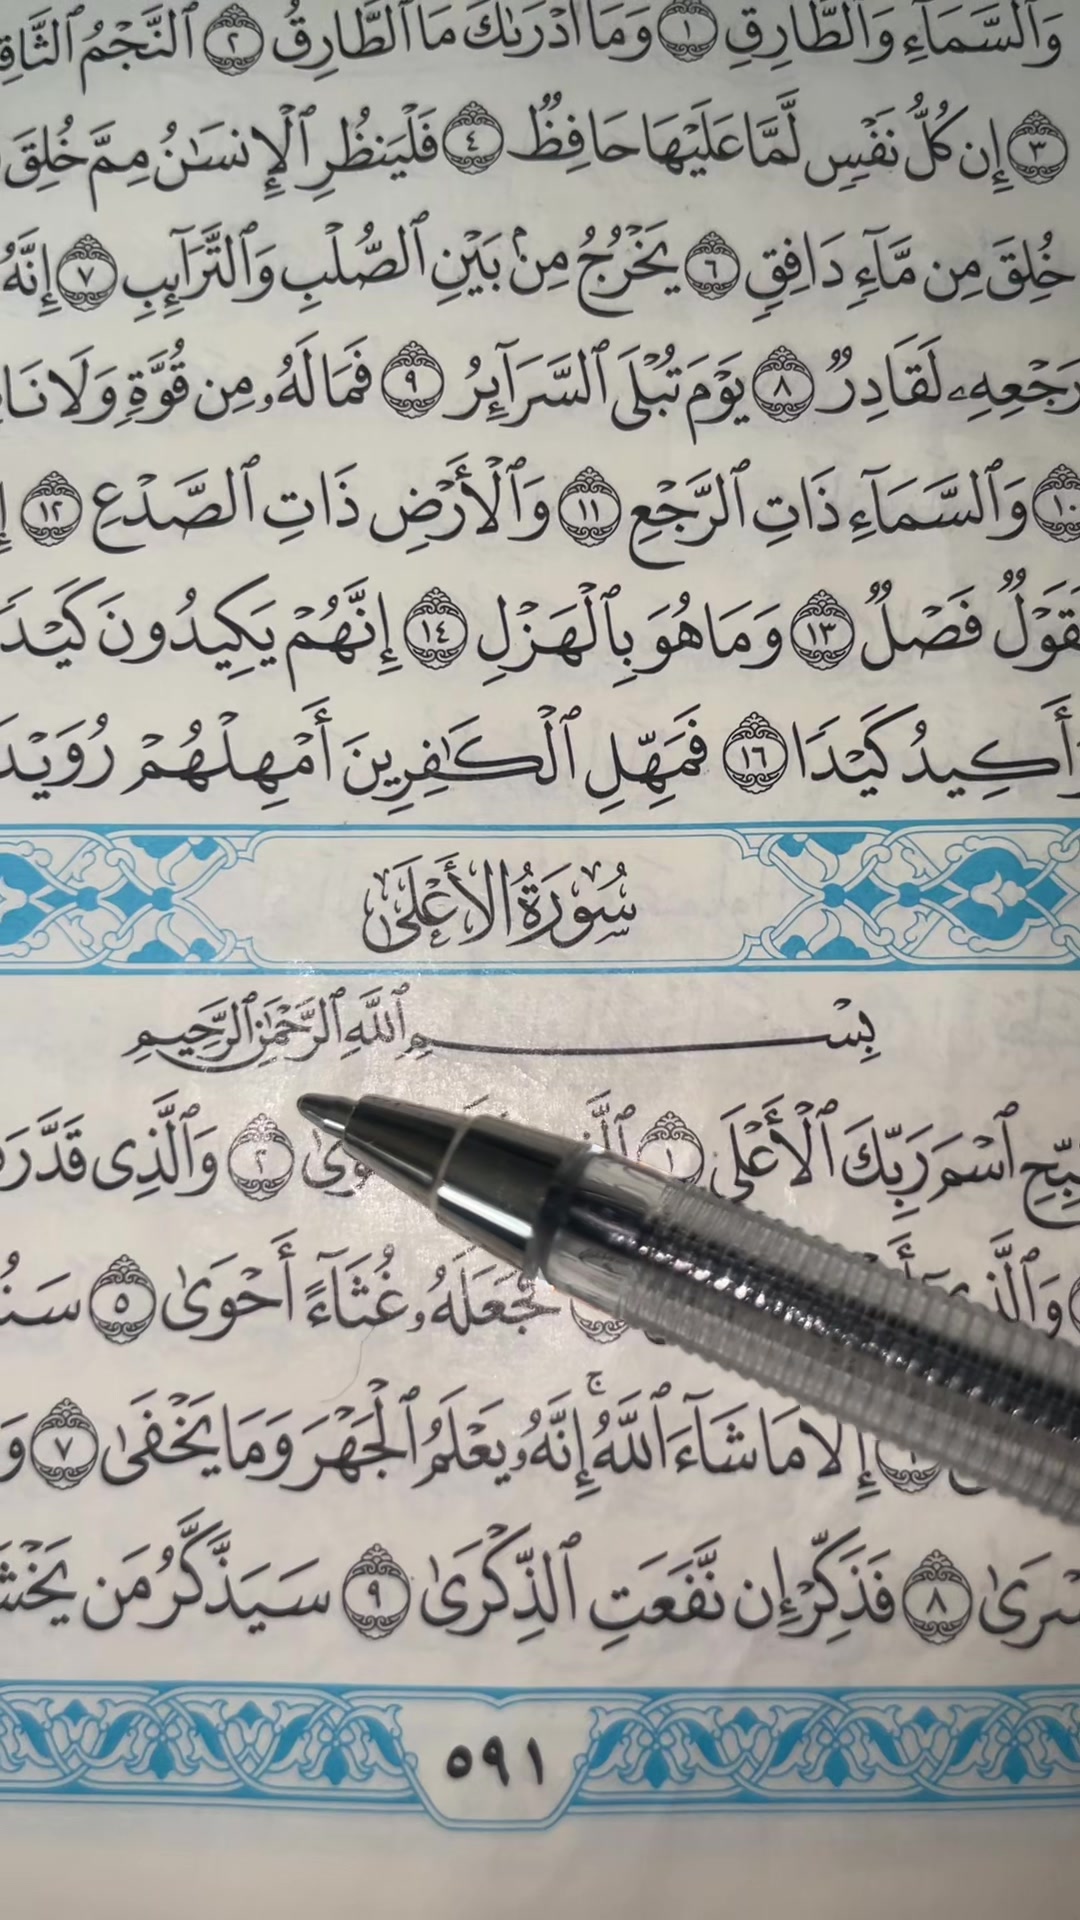 وَٱلسَّمَآءِ وَٱلطَّارِقِ ١ وَمَآ أَدْرَىٰكَ مَا ٱلطَّارِقُ ٢ ٱلنَّجْمُ
٣ إِن كُلُّ نَفْسٍ لَّمَّا عَلَيْهَا حَافِظٌ ٤ فَلْيَنظُرِ ٱلْإِنسَٰنُ مِمَّ خُلِقَ
خُلِقَ مِن مَّآءٍ دَافِقٍ ٦ يَخْرُجُ مِنۢ بَيْنِ ٱلصُّلْبِ وَٱلتَّرَآئِبِ ٧ إِنَّهُ
رَجْعِهِۦ لَقَادِرٌ ٨ يَوْمَ تُبْلَى ٱلسَّرَآئِرُ ٩ فَمَا لَهُۥ مِن قُوَّةٍ وَلَا
١٠ وَٱلسَّمَآءِ ذَاتِ ٱلرَّجْعِ ١١ وَٱلْأَرْضِ ذَاتِ ٱلصَّدْعِ ١٢
لَقَوْلٌ فَصْلٌ ١٣ وَمَا هُوَ بِٱلْهَزْلِ ١٤ إِنَّهُمْ يَكِيدُونَ كَيْدًا
وَأَكِيدُ كَيْدًا ١٦ فَمَهِّلِ ٱلْكَٰفِرِينَ أَمْهِلْهُمْ رُوَيْدًا
سُورَةُ الأَعْلَىٰ
بِسْمِ ٱللَّهِ ٱلرَّحْمَٰنِ ٱلرَّحِيمِ
ٱسْمَ رَبِّكَ ٱلْأَعْلَى ١ ٢ وَٱلَّذِى قَدَّرَ
وَٱلَّذِىٓ فَجَعَلَهُۥ غُثَآءً أَحْوَىٰ ٥
إِلَّا مَا شَآءَ ٱللَّهُ ۚ إِنَّهُۥ يَعْلَمُ ٱلْجَهْرَ وَمَا يَخْفَىٰ ٧
٨ فَذَكِّرْ إِن نَّفَعَتِ ٱلذِّكْرَىٰ ٩ سَيَذَّكَّرُ مَن
٥٩١